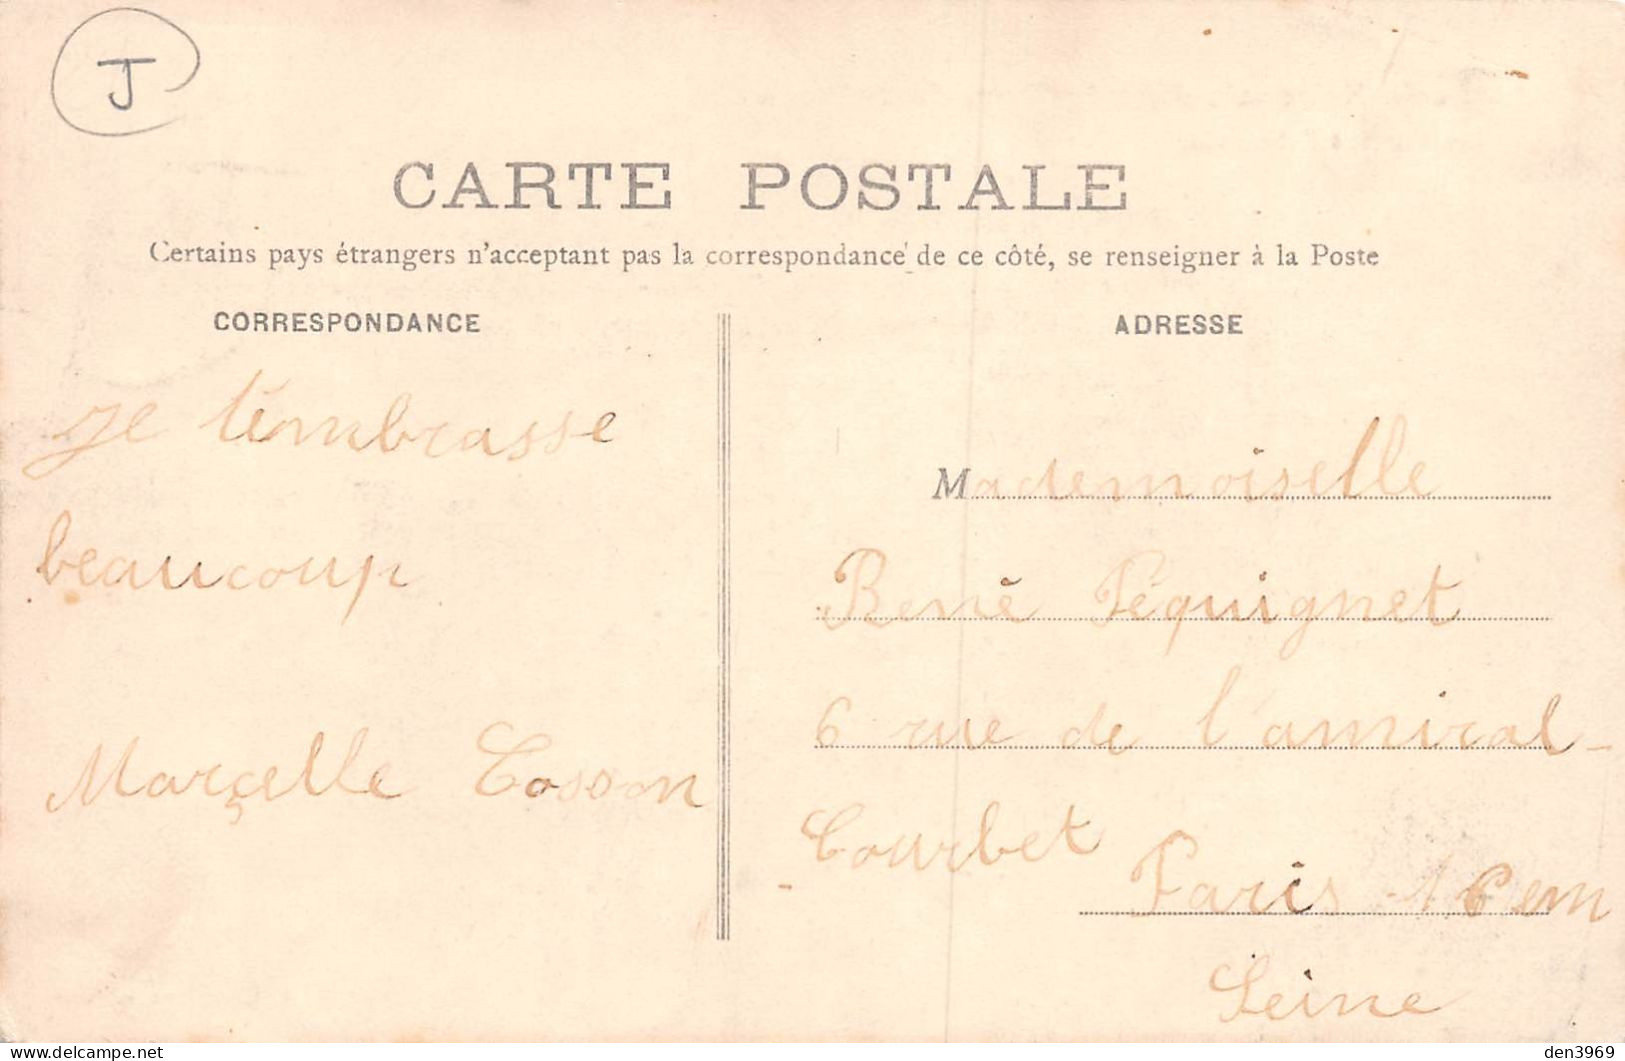 J
CARTE POSTALE
Certains pays étrangers n'acceptant pas la correspondance de ce côté, se renseigner à la Poste
CORRESPONDANCE
je t'embrasse
beaucoup
Marçelle Cosson
ADRESSE
Mademoiselle
René Péquignet
6 rue de l'amiral-
Courbet
Paris 16em
Seine
den3969